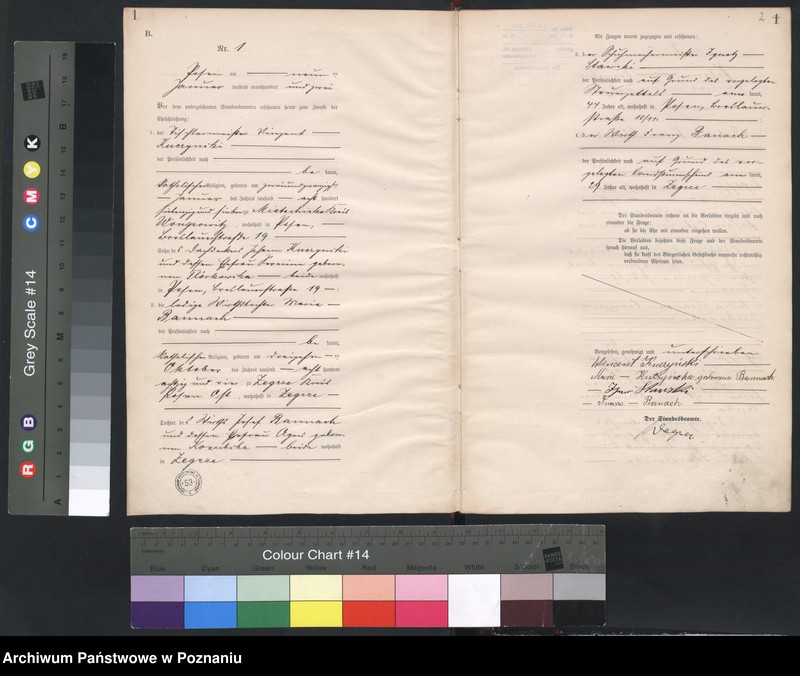 1
B.
Nr. 1
Posen am neun
Januar tausend neunhundert und zwei
Vor dem unterzeichneten Standesbeamten erschienen heute zum Zwecke der
Eheschließung:
1. der Tischlermeister Vincent
Kuczynski
der Persönlichkeit nach
be kannt,
katholischer Religion, geboren am
Januar des Jahres tausend acht hundert
siebenzig und sieben
wohnhaft in Posen,
Breslauerstraße 19
Sohn des Dachdeckers Johann Kuczynski
und dessen Ehefrau geborenen
beide wohnhaft
in Posen, Breslauerstraße 19
2. die ledige Maria
Bannach
der Persönlichkeit nach
be kannt,
katholischer Religion, geboren am dreizehn
Oktober des Jahres tausend acht hundert
achtzig und vier zu Zegrze Kreis
Posen Ost, wohnhaft in Zegrze
Tochter des Wirths Josef Bannach
und dessen Ehefrau Agnes geborenen
beide wohnhaft
in Zegrze
53
2
1
Als Zeugen waren zugezogen und erschienen:
3. der Schuhmachermeister Ignatz
Slawski
der Persönlichkeit nach auf Grund des vorgelegten
Steuerzettels aner kannt,
44 Jahre alt, wohnhaft in Posen, Breslauer
straße
4. der Wirth Franz Banach
der Persönlichkeit nach auf Grund des vor
gelegten aner kannt,
29 Jahre alt, wohnhaft in Zegrze
Der Standesbeamte richtete an die Verlobten einzeln und nach
einander die Frage:
ob sie die Ehe mit einander eingehen wollen.
Die Verlobten bejahten diese Frage und der Standesbeamte
sprach hierauf aus,
daß sie kraft des Bürgerlichen Gesetzbuchs nunmehr rechtmäßig
verbundene Eheleute seien.
Vorgelesen, genehmigt und unterschrieben
Wincent Kuczyński
Maria Kuczyńska geborene Bannach
Ignac Sławski
Franz Banach
Der Standesbeamte.
Grey Scale #14
R G B
C M Y K
A 1 2 3 4 5 6 M 8 9 10 11 12 13 14 15 B 17 18 19
Colour Chart #14
Blue Cyan Green Yellow Red Magenta White 3/Color Black
DANES PICTA
Archiwum Państwowe w Poznaniu